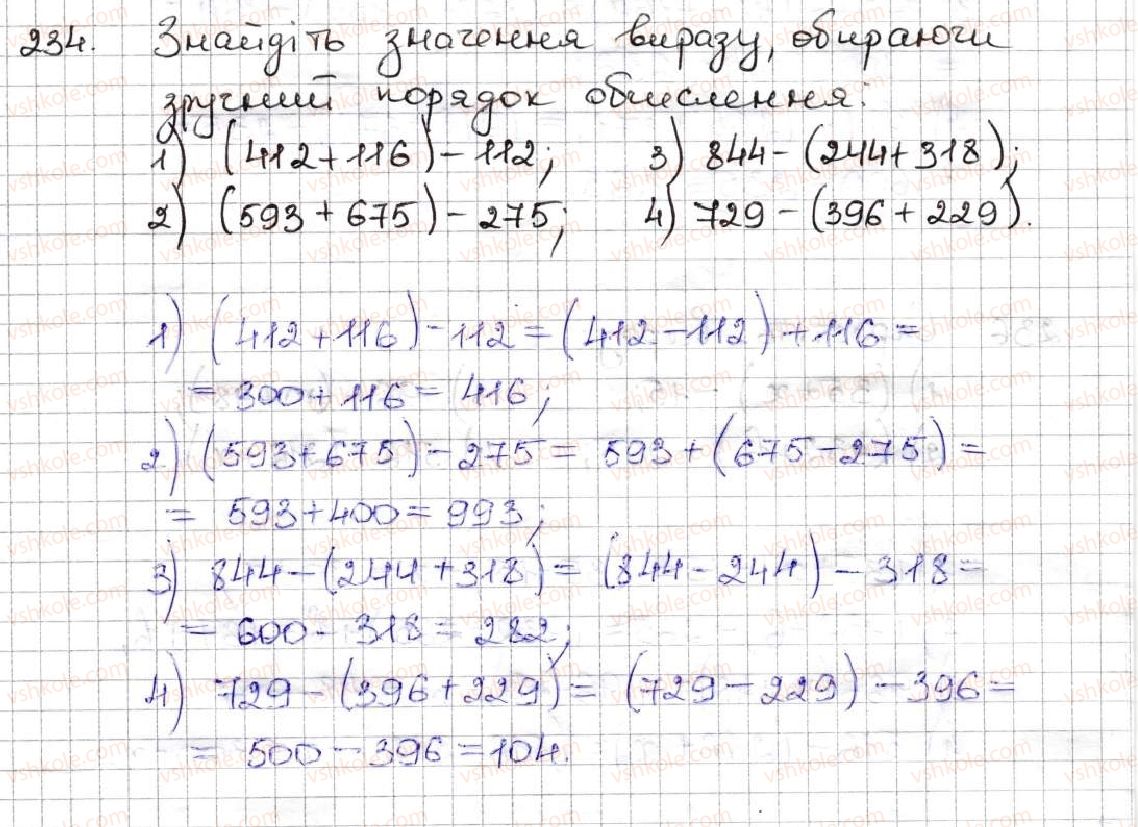 234. Знайдіть значення виразу, обираючи
зручний порядок обчислення:
1) (412+116)-112; 3) 844-(244+318);
2) (593+675)-275; 4) 729-(396+229).
1) (412+116)-112=(412-112)+116=
=300+116=416;
2) (593+675)-275= 593+(675-275)=
= 593+400=993;
3) 844-(244+318)=(844-244)-318=
=600-318=282;
4) 729-(396+229)= (729-229)-396=
= 500-396=104.